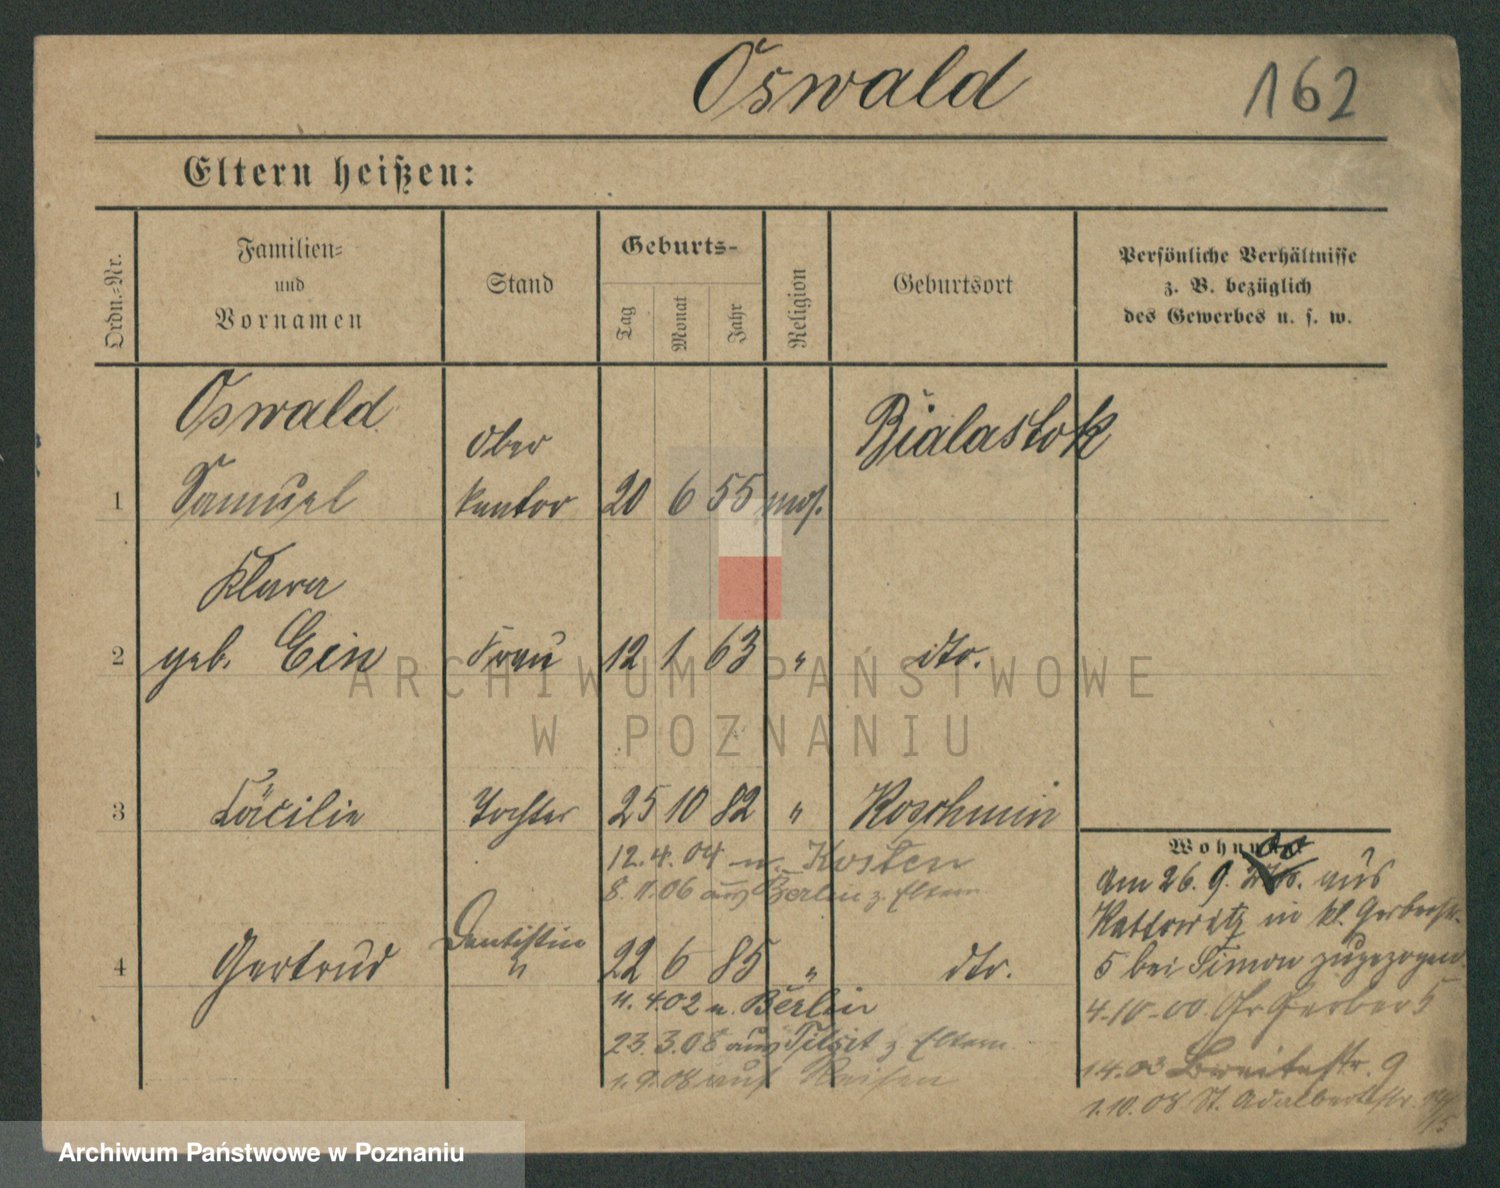 Oswald 162
Eltern heißen:
Ordn.-Nr.
Familien-
und
Vornamen
Stand
Geburts-
Tag
Monat
Jahr
Religion
Geburtsort
Persönliche Verhältnisse
z. B. bezüglich
des Gewerbes u. s. w.
Oswald
Ober
Bialastok
1 Samuel kantor 20 6 55 mos.
Klara
2 geb. Ein Frau 12 1 63 " dto.
ARCHIWUM PAŃSTWOWE
W POZNANIU
3 Cäcilie Tochter 25 10 82 " Koschmin
12.4.04 n. Kosten
8.11.06 aus Berlin z. Eltern
Dentistin
4 Gertrud " 22 6 85 " dto.
4.02 n. Berlin
23.3.08 aus Tilsit z Eltern
1.9.08 auf Reisen
Wohnung
Am 26. 9. aus
Kattowitz in kl. Gerberstr.
5 bei Simon zugezogen
4-10-00. Gr Gerber 5
1.4.03 Breitestr. 9
1.10.08 St. Adalbertstr.
Archiwum Państwowe w Poznaniu